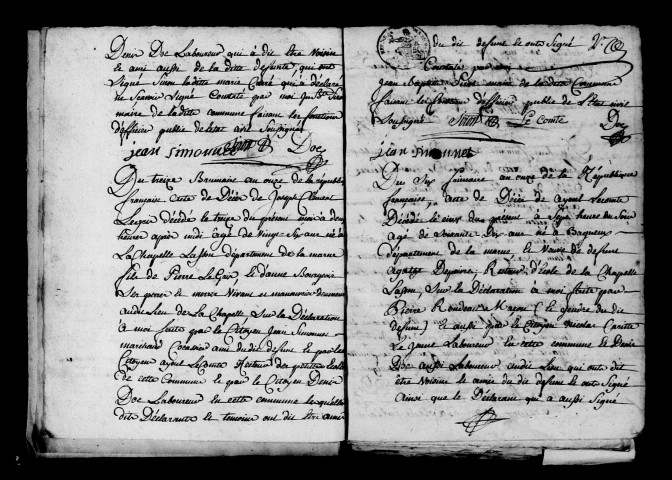 Denis Doc Laboureur qui a dit être voisin
et ami aussi de la ditte defunte, qui ont
Signé Sinon laditte marie Carré qui a déclaré
ne Scavoir Signé Constaté par moi
maire de la ditte commune faisant les fonctions
d'officier public de letat civil Soussigné
jean simonnet Doc
Du treize Brumaire an onze de la république
française acte de Décès de Joseph
Legrix décédé le treize du présent mois a deux
heures après midi âgé de vingt Six ans né à
La Chapelle Lasson département de la marne
fils de Pierre Le et d'anne Bourgeois
Ses perre et merre vivant et manouvrier demeurant
audit Lieu de La Chapelle, Sur la Déclaration
à moi faite par le Citoyen Jean Simonnet
marchand ami du dit defunt et par le
Citoyen ayoul Leconte Recteur des petittes Ecoles
de cette Commune et par le Citoyen Denis
Doc Laboureur en cette commune lesquels
dit Déclarants et temoins ont dit être amis
du dit defunt et ont Signé
Constaté par moi
jean Baptiste maire de la ditte Commune
faisant les fonctions d'officier public de l'Etat civil
Soussigné Le Comte Doc
jean simonnet
Du Six frimaire an onze de la République
française, acte de Décès de ayoul Leconte
Décédé le cinq du present à Sept heures du Soir
agé de Soixante Dix ans né à Bagneux
département de la marne et Veuve de defunte
agathe Depoivre Recteur d'école de la Chapelle
Lasson, Sur la Déclaration à moi faite par
Pierre Rondeau Maçon et gendre du dit
defunt et aussi par le Citoyen nicolas Carette
Le jeune Laboureur en cette commune et Denis
Doc aussi Laboureur audit Lieu qui ont dit
être Voisins et amis du dit defunt et ont Signé
Ainsi que le Déclarant qui a aussi Signé